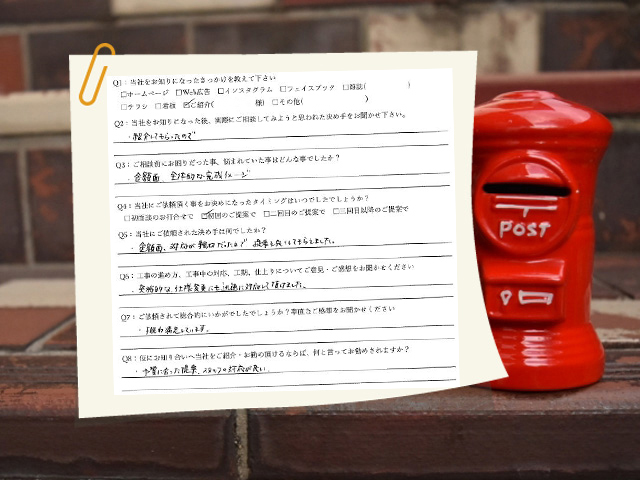 Q1：当社をお知りになったきっかけを教えて下さい
□ホームページ □Web広告 □インスタグラム □フェイスブック □雑誌( )
□チラシ □看板 ☑ご紹介( 様) □その他( )
Q2：当社をお知りになった後、実際にご相談してみようと思われた決め手をお聞かせ下さい。
・紹介してもらったので
Q3：ご相談前にお困りだった事、悩まれていた事はどんな事でしたか？
・金額面、全体的な完成イメージ
Q4：当社にご依頼頂く事をお決めになったタイミングはいつでしたでしょうか？
□初面談のお打合せで ☑初回のご提案で □二回目のご提案で □三回目以降のご提案で
Q5：当社にご依頼された決め手は何でしたか？
・金額面、対応が親切だったので 提案も良くしてもらえました。
Q6：工事の進め方、工事中の対応、工期、仕上りについてご意見・ご感想をお聞かせください
・突発的な仕様変更にも迅速に対応して頂けました。
Q7：ご依頼されて総合的にいかがでしたでしょうか？率直なご感想をお聞かせください
・概ね満足しています。
Q8：仮にお知り合いへ当社をご紹介・お勧め頂けるならば、何と言ってお勧めされますか？
・予算に合った提案、スタッフの対応が良い。
POST